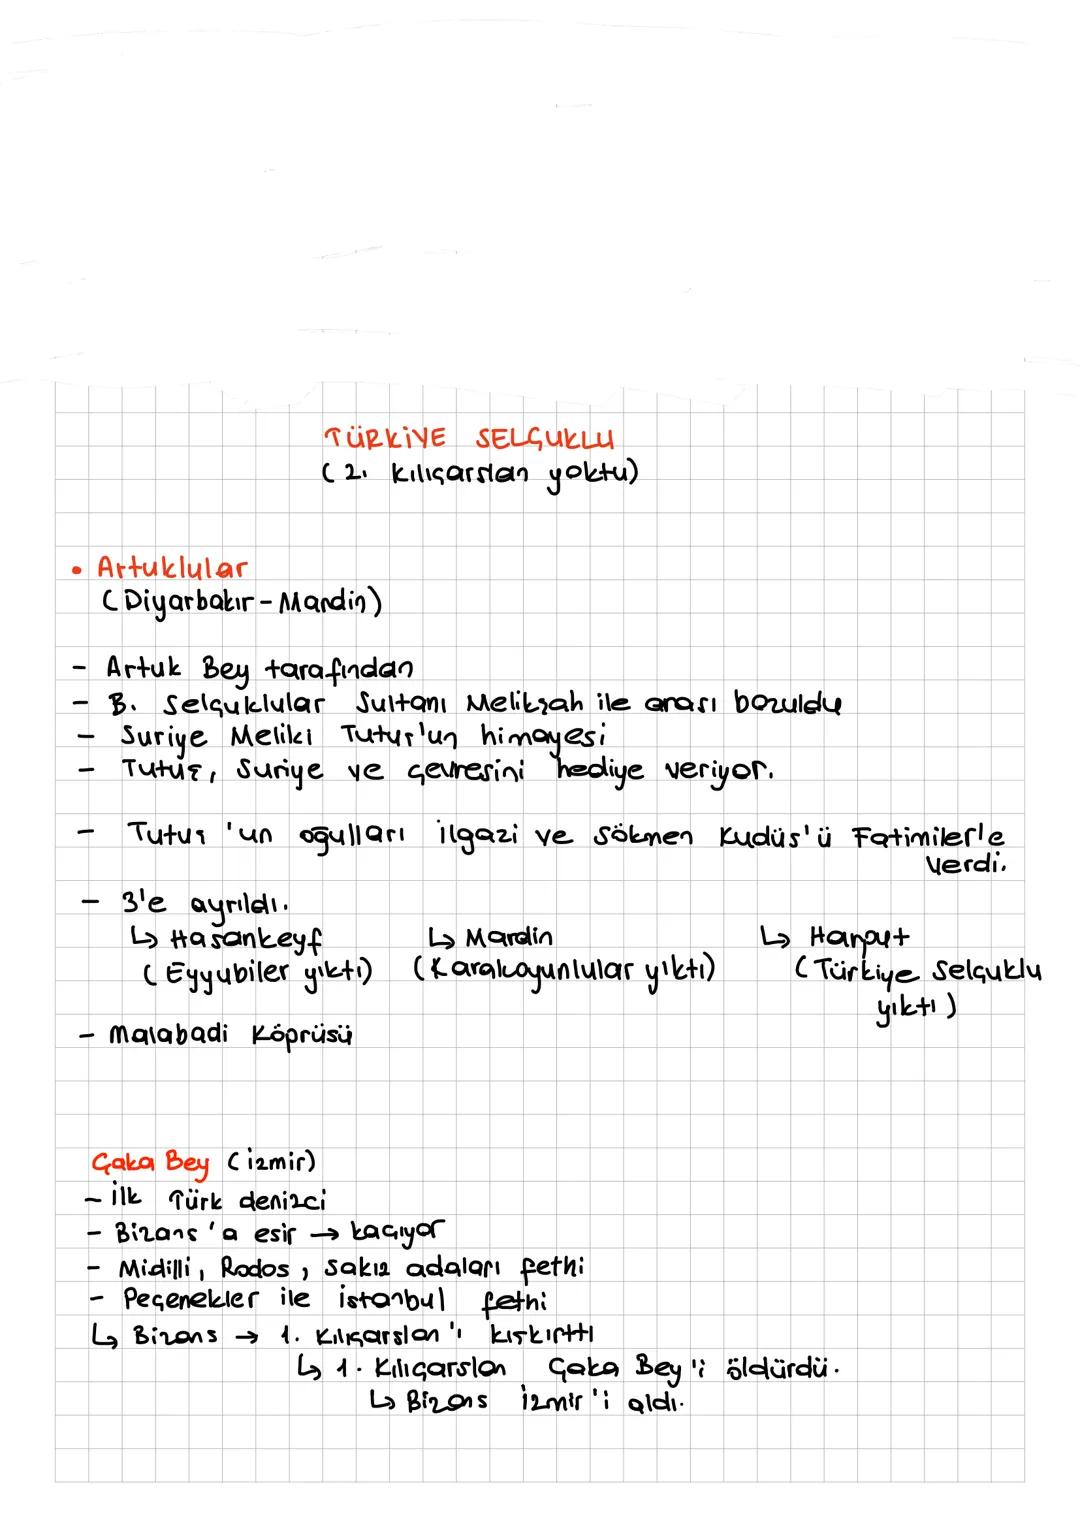 TÜRKİYE SELÇUKLU
(2. Kılıçarslan yoktu)
• Artuklular
(Diyarbakır - Mardin)
- Artuk Bey tarafından
- B. Selçuklular Sultanı Melikşah ile arası bozuldu
- Suriye Meliki Tutuş'un himayesi
- Tutuş, Suriye ve çevresini hediye veriyor.
- Tutuş 'un oğulları ilgazi ve Sökmen Kudüs'ü Fatimiler'e
verdi.
- 3'e ayrıldı.
↳ Hasankeyf ↳ Mardin ↳ Harput
(Eyyubiler yıktı) (Karakoyunlular yıktı) (Türkiye Selçuklu
yıktı)
- Malabadi Köprüsü
Çaka Bey (izmir)
- İlk Türk denizci
- Bizans 'a esir → kaçıyor
- Midilli, Rodos, Sakız adaları fethi
- Peçenekler ile istanbul fethi
↳ Bizans → 1. Kılıçarslan 'ı kışkırttı
↳ 1. Kılıçarslan Çaka Bey 'i öldürdü.
↳ Bizans izmir 'i aldı.